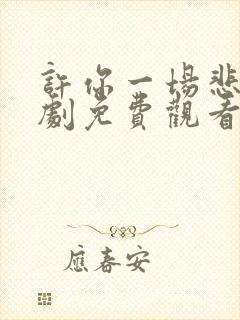 許你一場悲
劇免費觀看
應春安